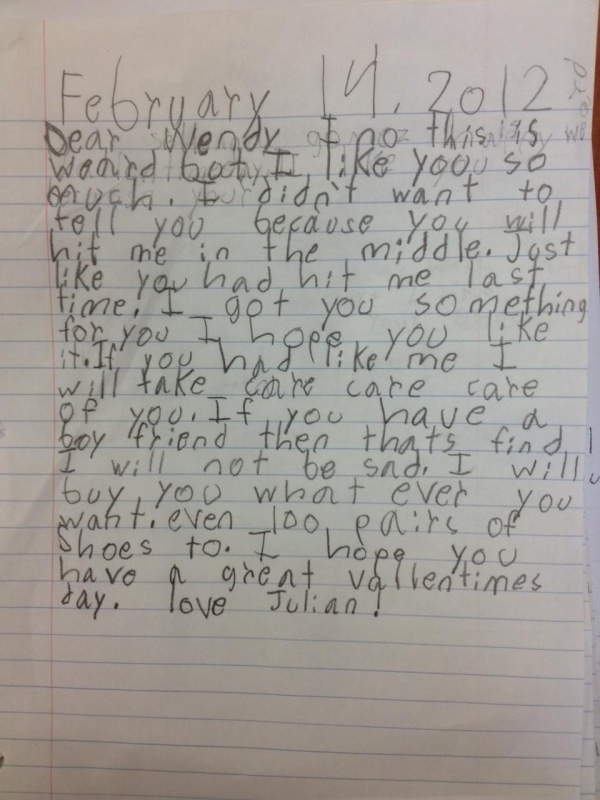 February 14, 2012
Dear Wendy I no this is
weard bot I like yoou so
much. I didn't want to
tell you because you will
hit me in the middle. Jost
like you had hit me last
time. I got you something
for you I hope you like
it. If you had like me I
will take care care care
of you. If you have a
boy friend then thats find
I will not be sad. I will
buy you what ever you
want. even 100 pairs of
Shoes to. I hope you
have a great vallentimes
day. love Julian!